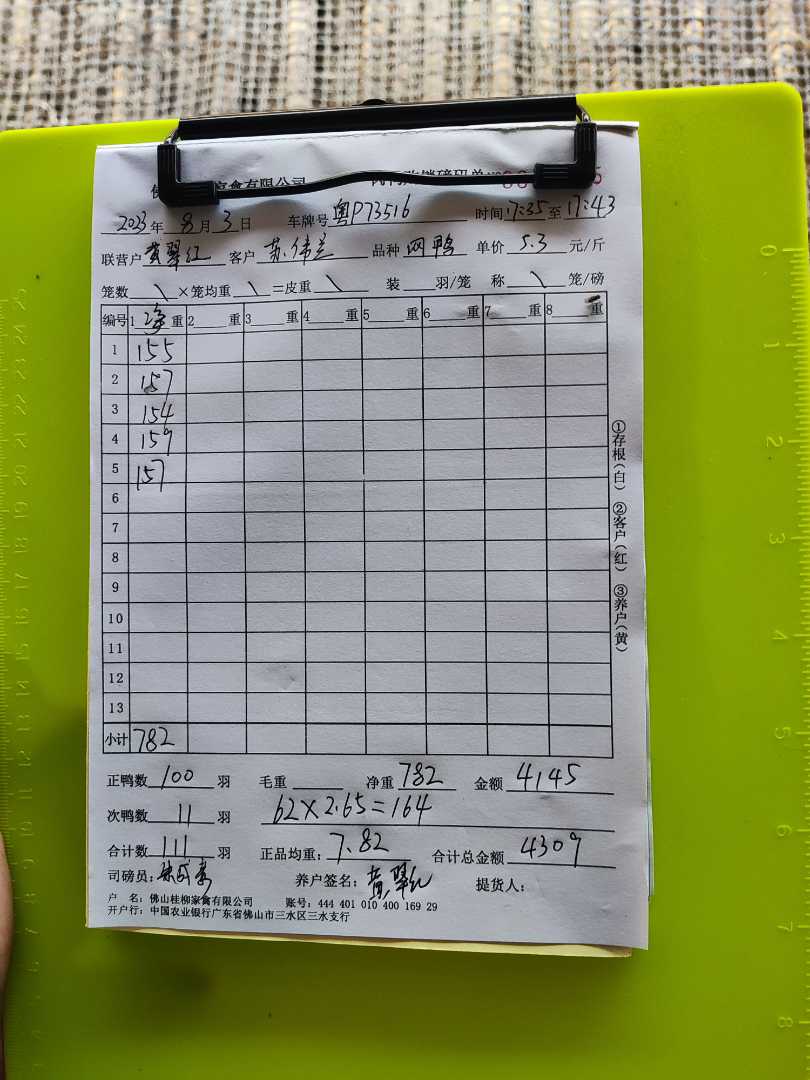 家禽有限公司
2023年 8月3日 车牌号 粤P73516 时间 17:35 至 17:43
联营户 黄翠红 客户 苏伟兰 品种 网鸭 单价 5.3 元/斤
笼数 \ ×笼均重 \ =皮重 \ 装 羽/笼 称 \ 笼/磅
编号 1 净 重 2 重 3 重 4 重 5 重 6 重 7 重 8 重
1 155
2 157
3 154
4 159
5 157
6
7
8
9
10
11
12
13
小计 782
正鸭数 100 羽 毛重 净重 782 金额 4145
次鸭数 11 羽 62×2.65=164
合计数 111 羽 正品均重: 7.82 合计总金额 4309
司磅员: 养户签名: 黄翠红 提货人:
户 名: 佛山桂柳家禽有限公司 账号: 444 401 010 400 169 29
开户行: 中国农业银行广东省佛山市三水区三水支行
①存根(白) ②客户(红) ③养户(黄)